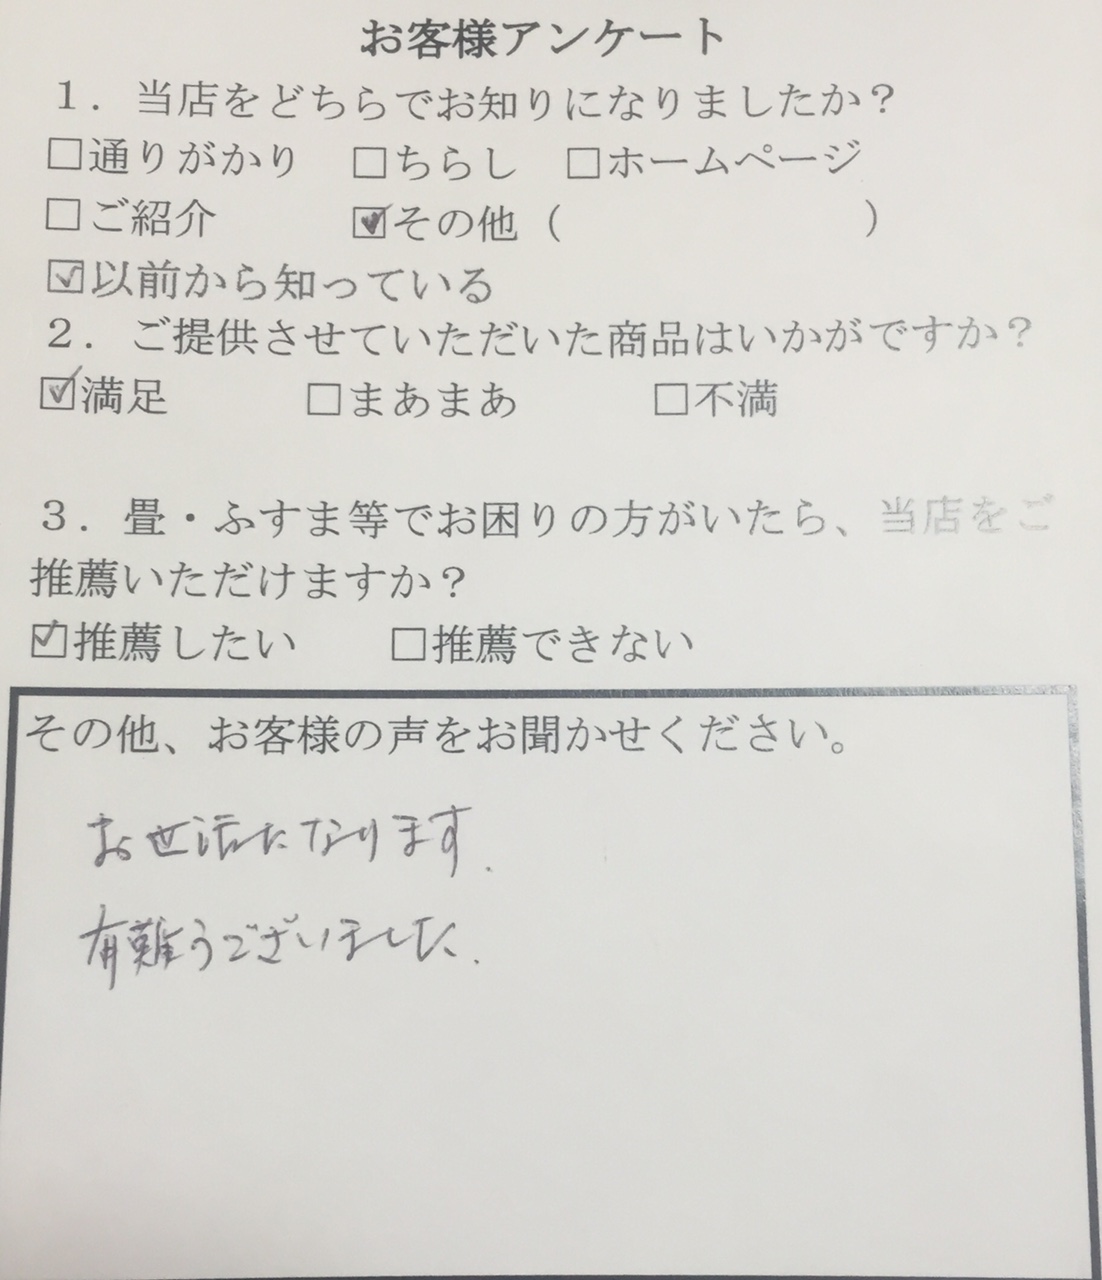 お客様アンケート
１．当店をどちらでお知りになりましたか？
□通りがかり □ちらし □ホームページ
□ご紹介 ☑その他（ ）
☑以前から知っている
２．ご提供させていただいた商品はいかがですか？
☑満足 □まあまあ □不満
３．畳・ふすま等でお困りの方がいたら、当店をご
推薦いただけますか？
☑推薦したい □推薦できない
その他、お客様の声をお聞かせください。
お世話になります.
有難うございました.